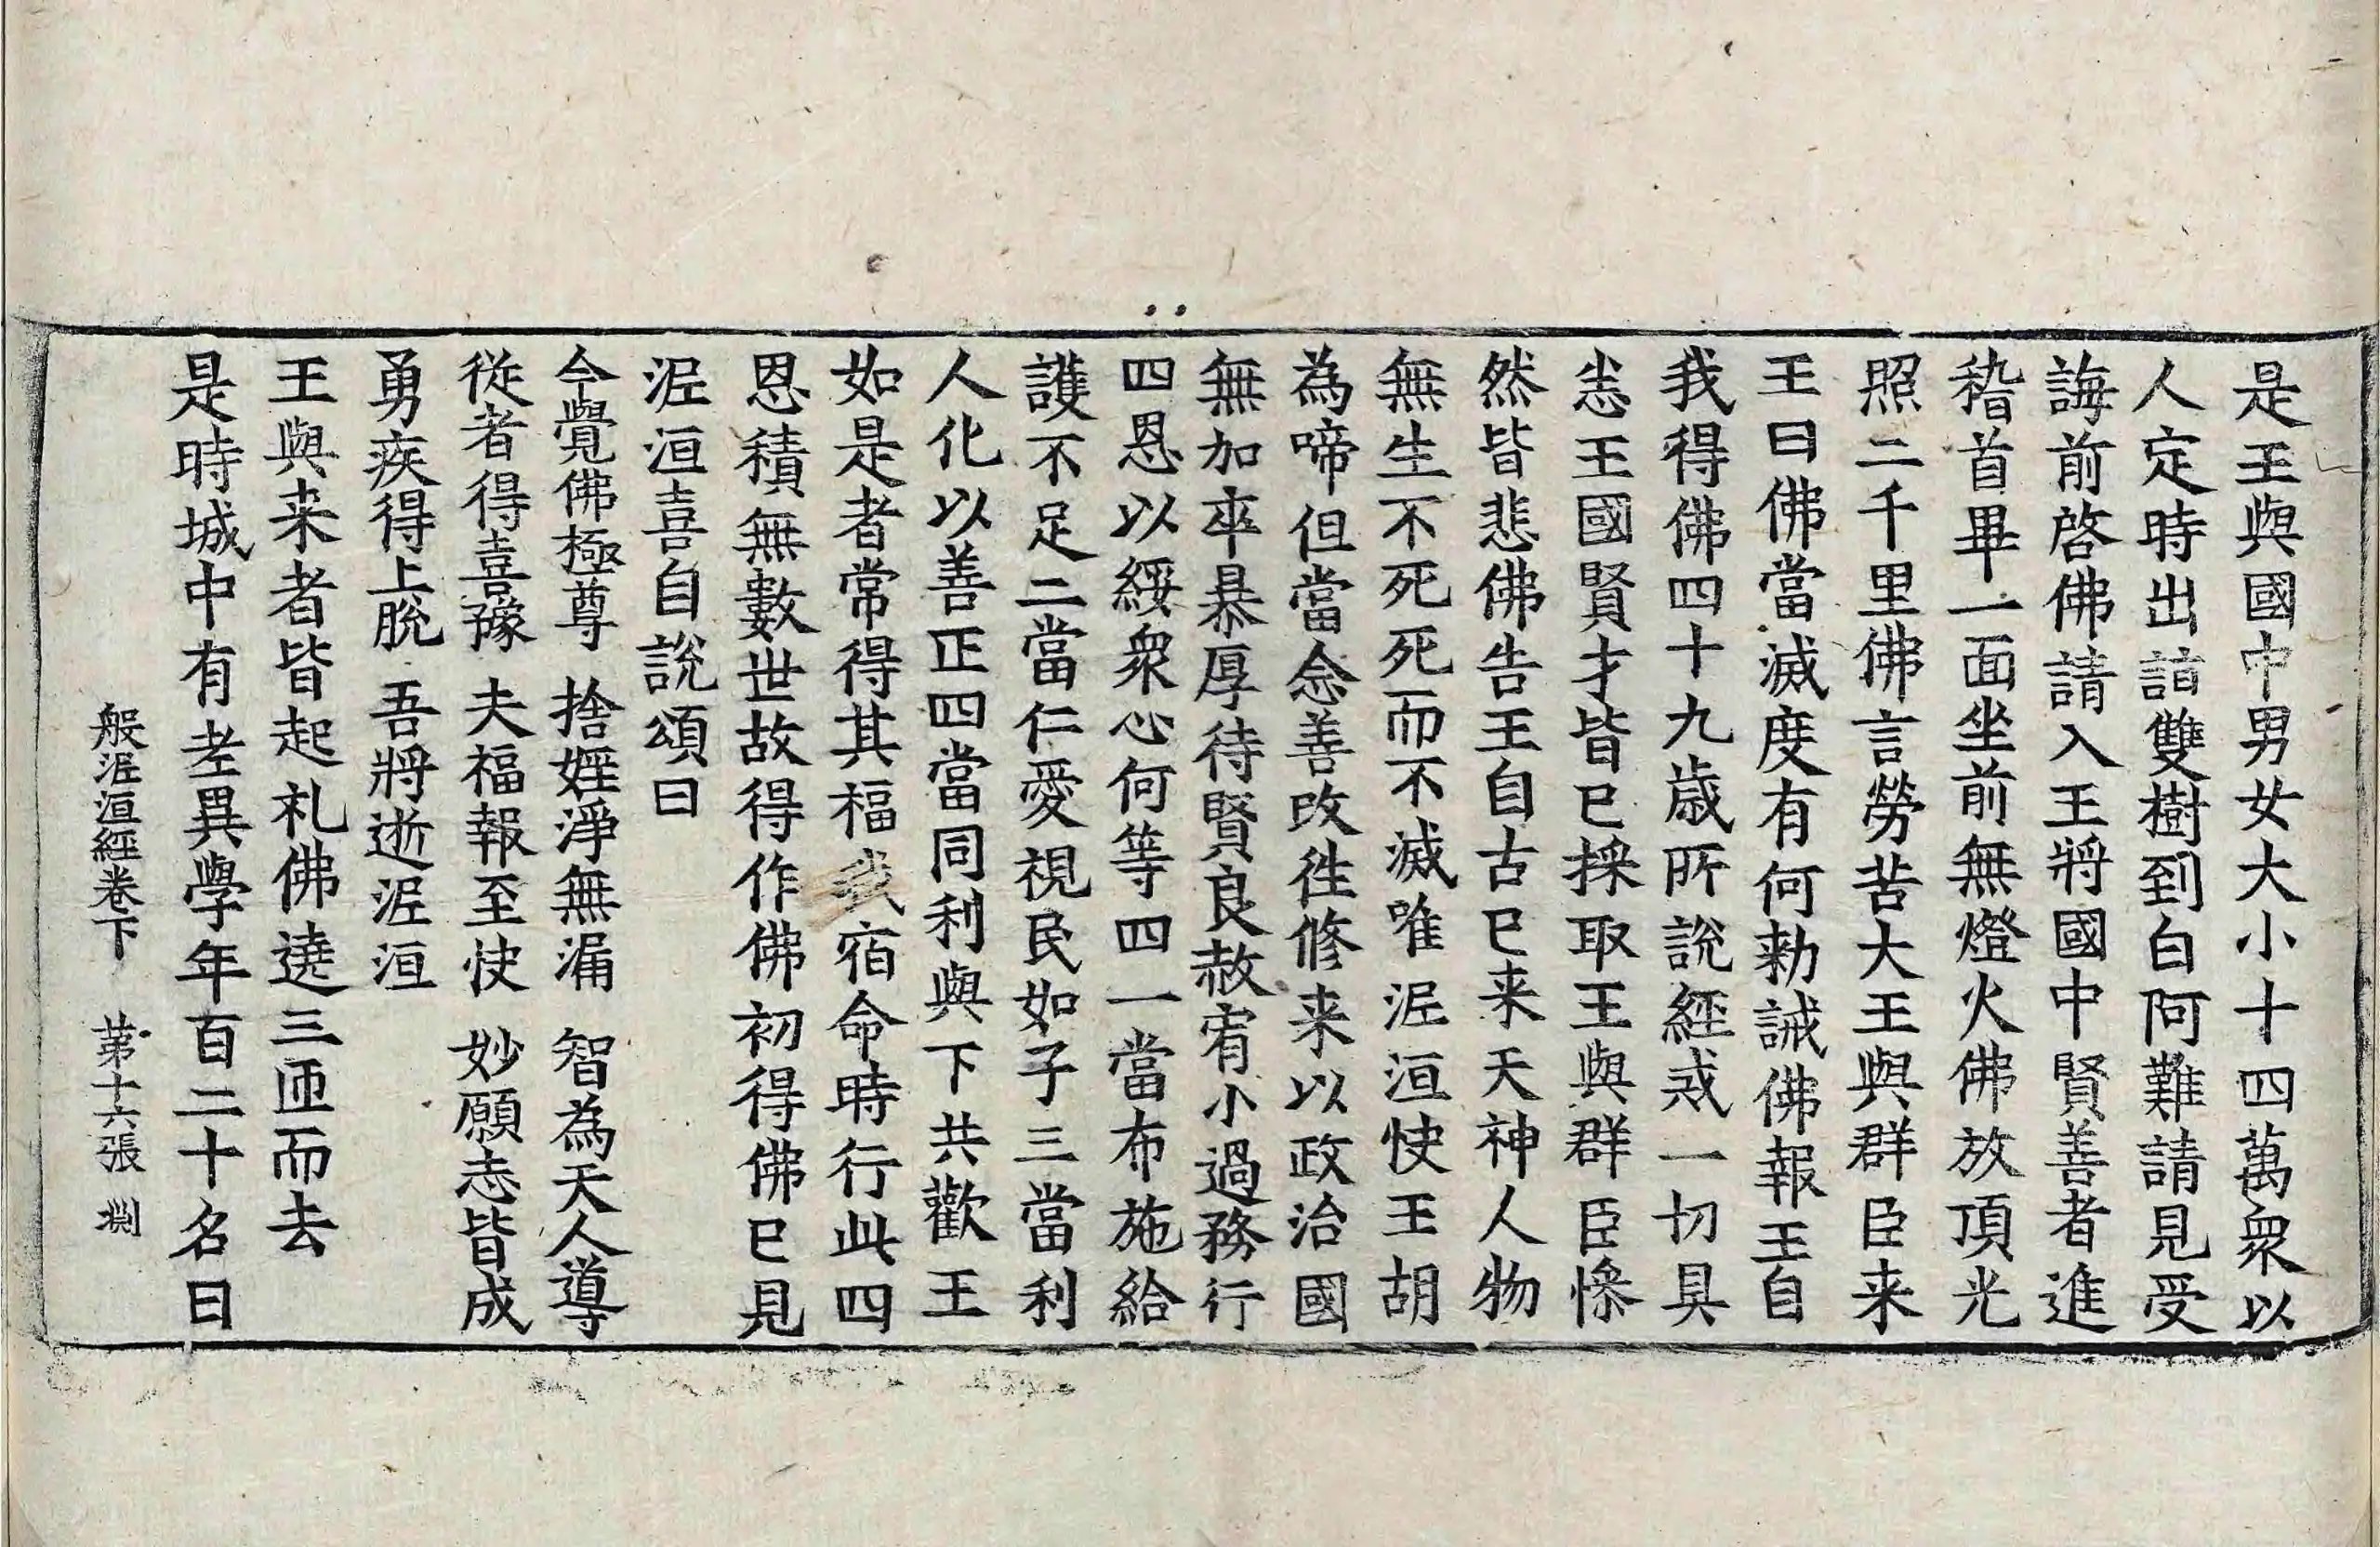 是王與國中男女大小十四萬衆以
人定時出詣雙樹到白阿難請見受
誨前啓佛請入王將國中賢善者進
稽首畢一面坐前無燈火佛放頂光
照二千里佛言勞苦大王與群臣来
王曰佛當滅度有何勅誡佛報王自
我得佛四十九歳所說經戒一切具
悉王國賢才皆已採取王與群臣慘
然皆悲佛告王自古已来天神人物
無生不死死而不滅唯泥洹快王胡
為啼但當念善改往修来以政治國
無加卒暴厚待賢良赦宥小過務行
四恩以綏衆心何等四一當布施給
護不足二當仁愛視民如子三當利
人化以善正四當同利與下共歡王
如是者常得其福我宿命時行此四
恩積無數世故得作佛初得佛已見
泥洹喜自說頌曰
今覺佛極尊 捨婬淨無漏 智為天人導
從者得喜豫 夫福報至快 妙願志皆成
勇疾得上脫 吾將逝泥洹
王與来者皆起礼佛遶三匝而去
是時城中有老異學年百二十名曰
般泥洹經卷下 第十六張 淵